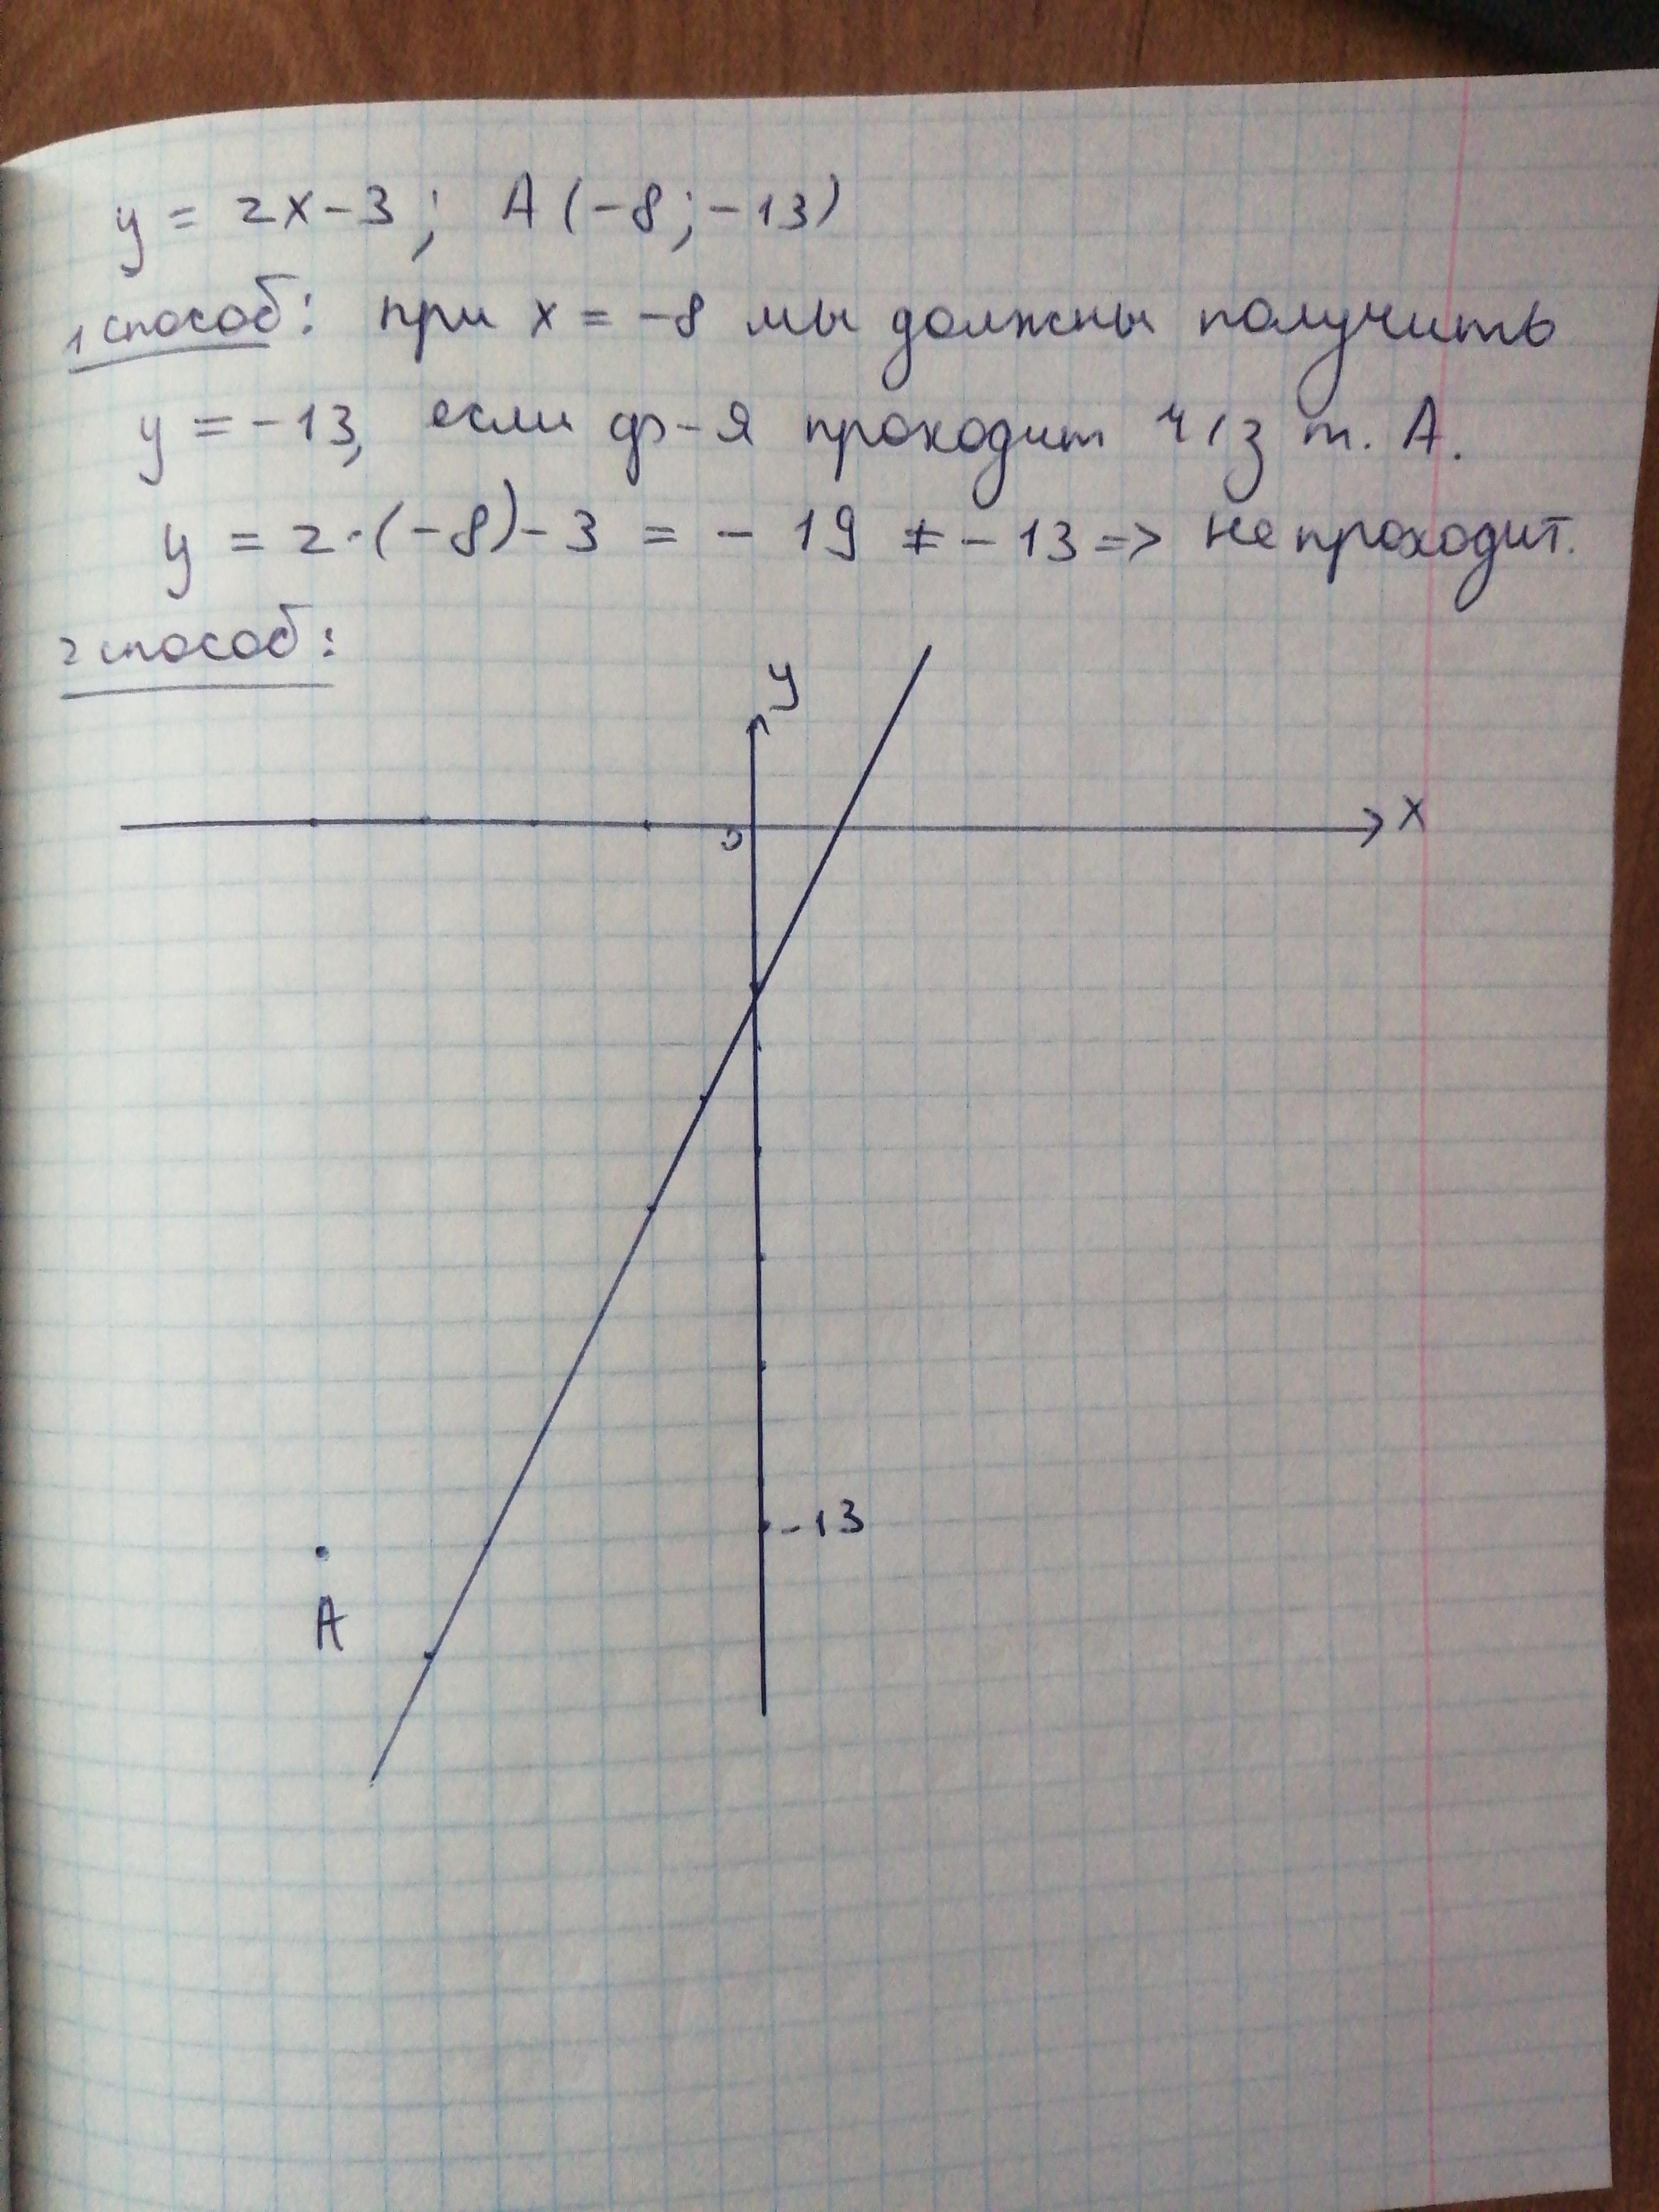 y = 2x-3; A(-8;-13)
1 способ: при x = -8 мы должны получить
y = -13, если ф-я проходит ч/з т. А.
y = 2·(-8)-3 = - 19 ≠ - 13 => не проходит.
2 способ:
y
0
x
-13
A